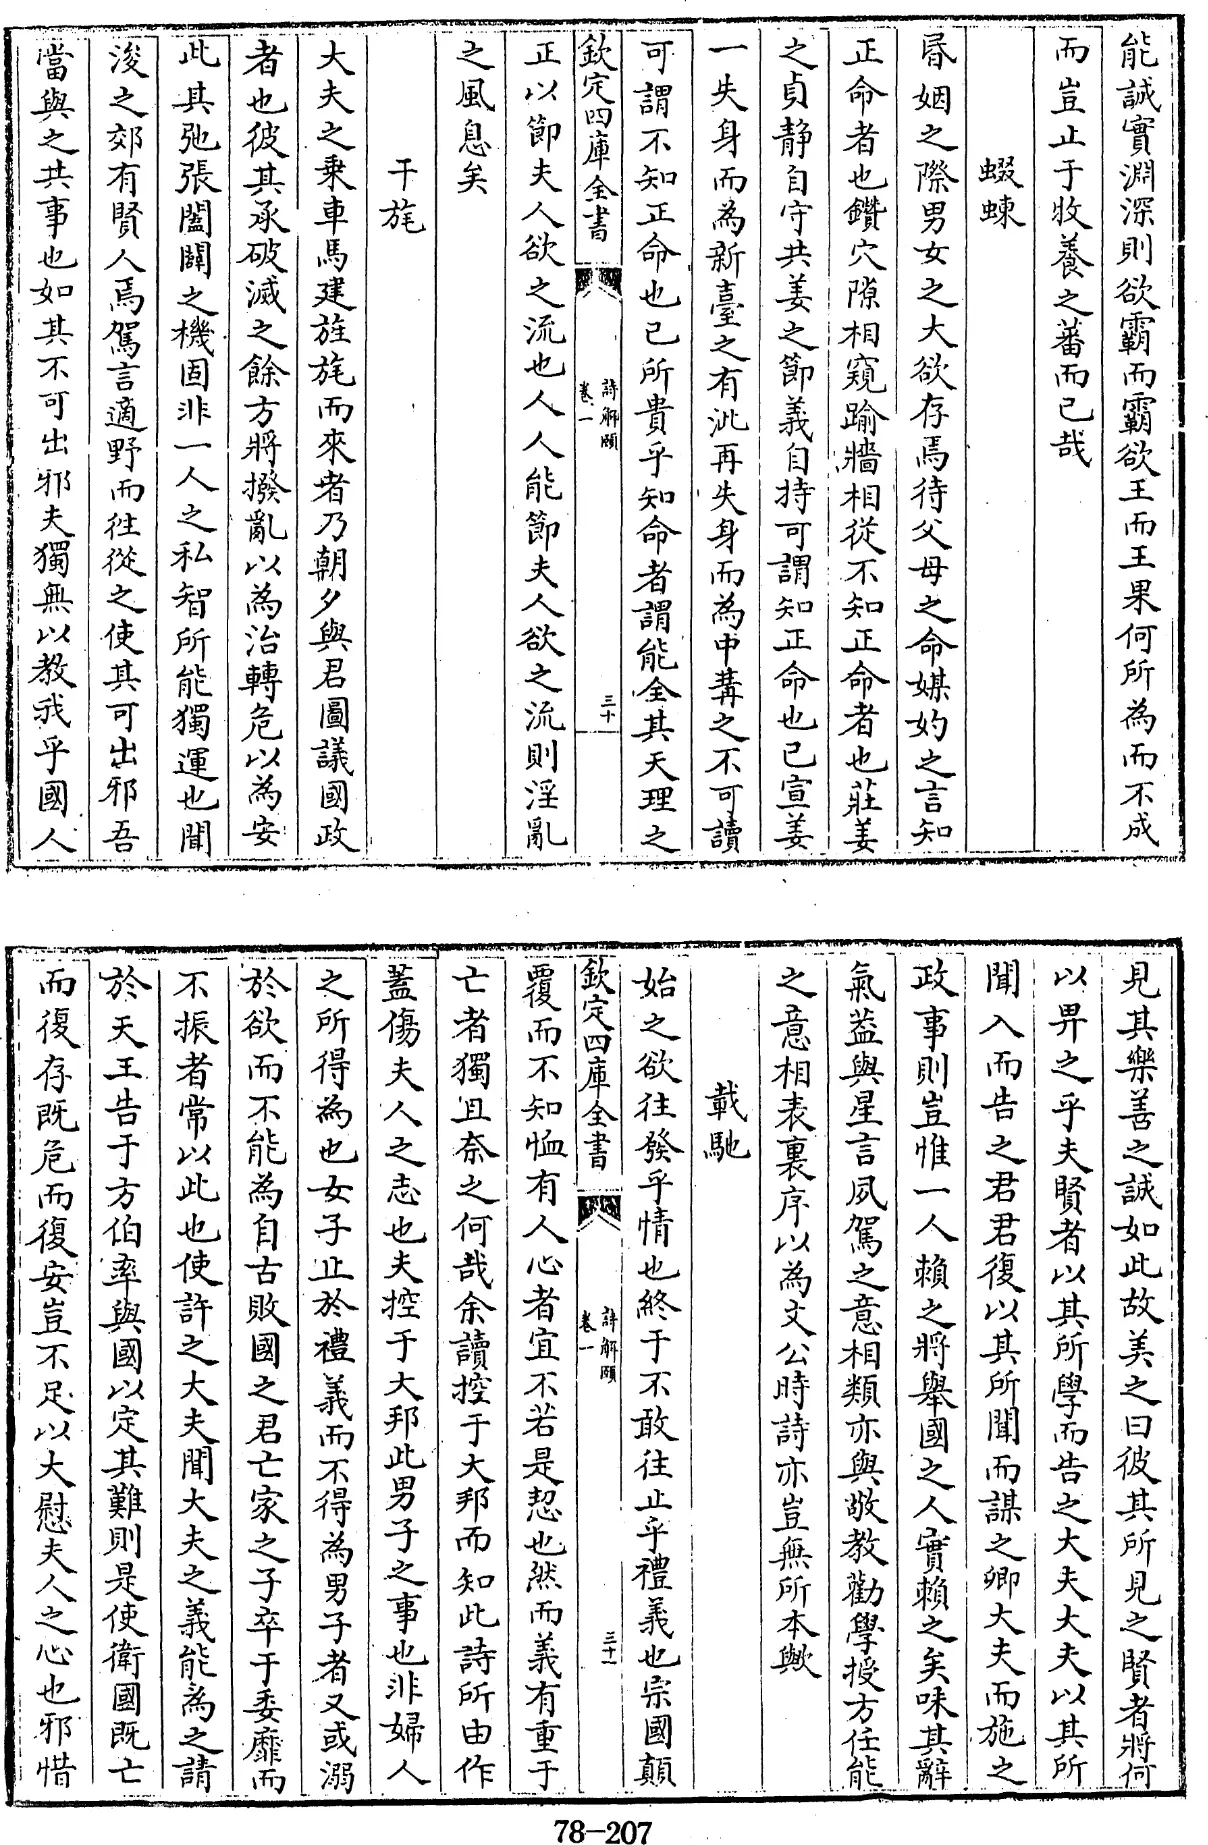 能誠實淵深則欲霸而霸欲王而王果何所為而不成
而豈止于牧養之蕃而已哉
蝃蝀
昏姻之際男女之大欲存焉待父母之命媒妁之言知
正命者也鑽穴隙相窺踰牆相從不知正命者也莊姜
之貞静自守共姜之節義自持可謂知正命也已宣姜
一失身而為新臺之有泚再失身而為中冓之不可讀
可謂不知正命也已所貴乎知命者謂能全其天理之
欽定四庫全書
詩解頤
卷一
三十
正以節夫人欲之流也人人能節夫人欲之流則淫亂
之風息矣
干旄
大夫之乗車馬建旌旄而來者乃朝夕與君圖議國政
者也彼其承破滅之餘方將撥亂以為治轉危以為安
此其弛張闔闢之機固非一人之私智所能獨運也聞
浚之郊有賢人焉駕言適野而往從之使其可出邪吾
當與之共事也如其不可出邪夫獨無以教我乎國人
見其樂善之誠如此故美之曰彼其所見之賢者將何
以畀之乎夫賢者以其所學而告之大夫大夫以其所
聞入而告之君君復以其所聞而謀之卿大夫而施之
政事則豈惟一人賴之將舉國之人實賴之矣味其辭
氣益與星言夙駕之意相類亦與敬教勸學授方任能
之意相表裏序以為文公時詩亦豈無所本歟
載馳
始之欲往發乎情也終于不敢往止乎禮義也宗國顛
欽定四庫全書
詩解頤
卷一
三十一
覆而不知恤有人心者宜不若是恝也然而義有重于
亡者獨且奈之何哉余讀控于大邦而知此詩所由作
蓋傷夫人之志也夫控于大邦此男子之事也非婦人
之所得為也女子止於禮義而不得為男子者又或溺
於欲而不能為自古敗國之君亡家之子卒于委靡而
不振者常以此也使許之大夫聞大夫之義能為之請
於天王告于方伯率與國以定其難則是使衛國既亡
而復存既危而復安豈不足以大慰夫人之心也邪惜
78-207